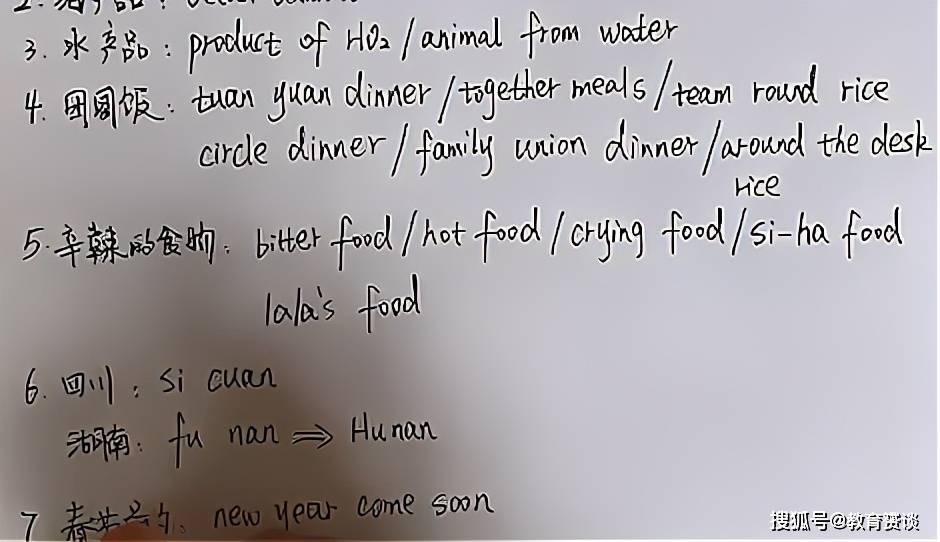 3. 水产品 : product of HO₂ / animal from water
4. 团圆饭 : tuan yuan dinner / together meals / team round rice
circle dinner / family union dinner / around the desk
rice
5. 辛辣的食物 : bitter food / hot food / crying food / si-ha food
lala's food
6. 四川 : si cuan
湖南 : fu nan ⇒ Hunan
7 new year come soon
搜狐号@教育资谈